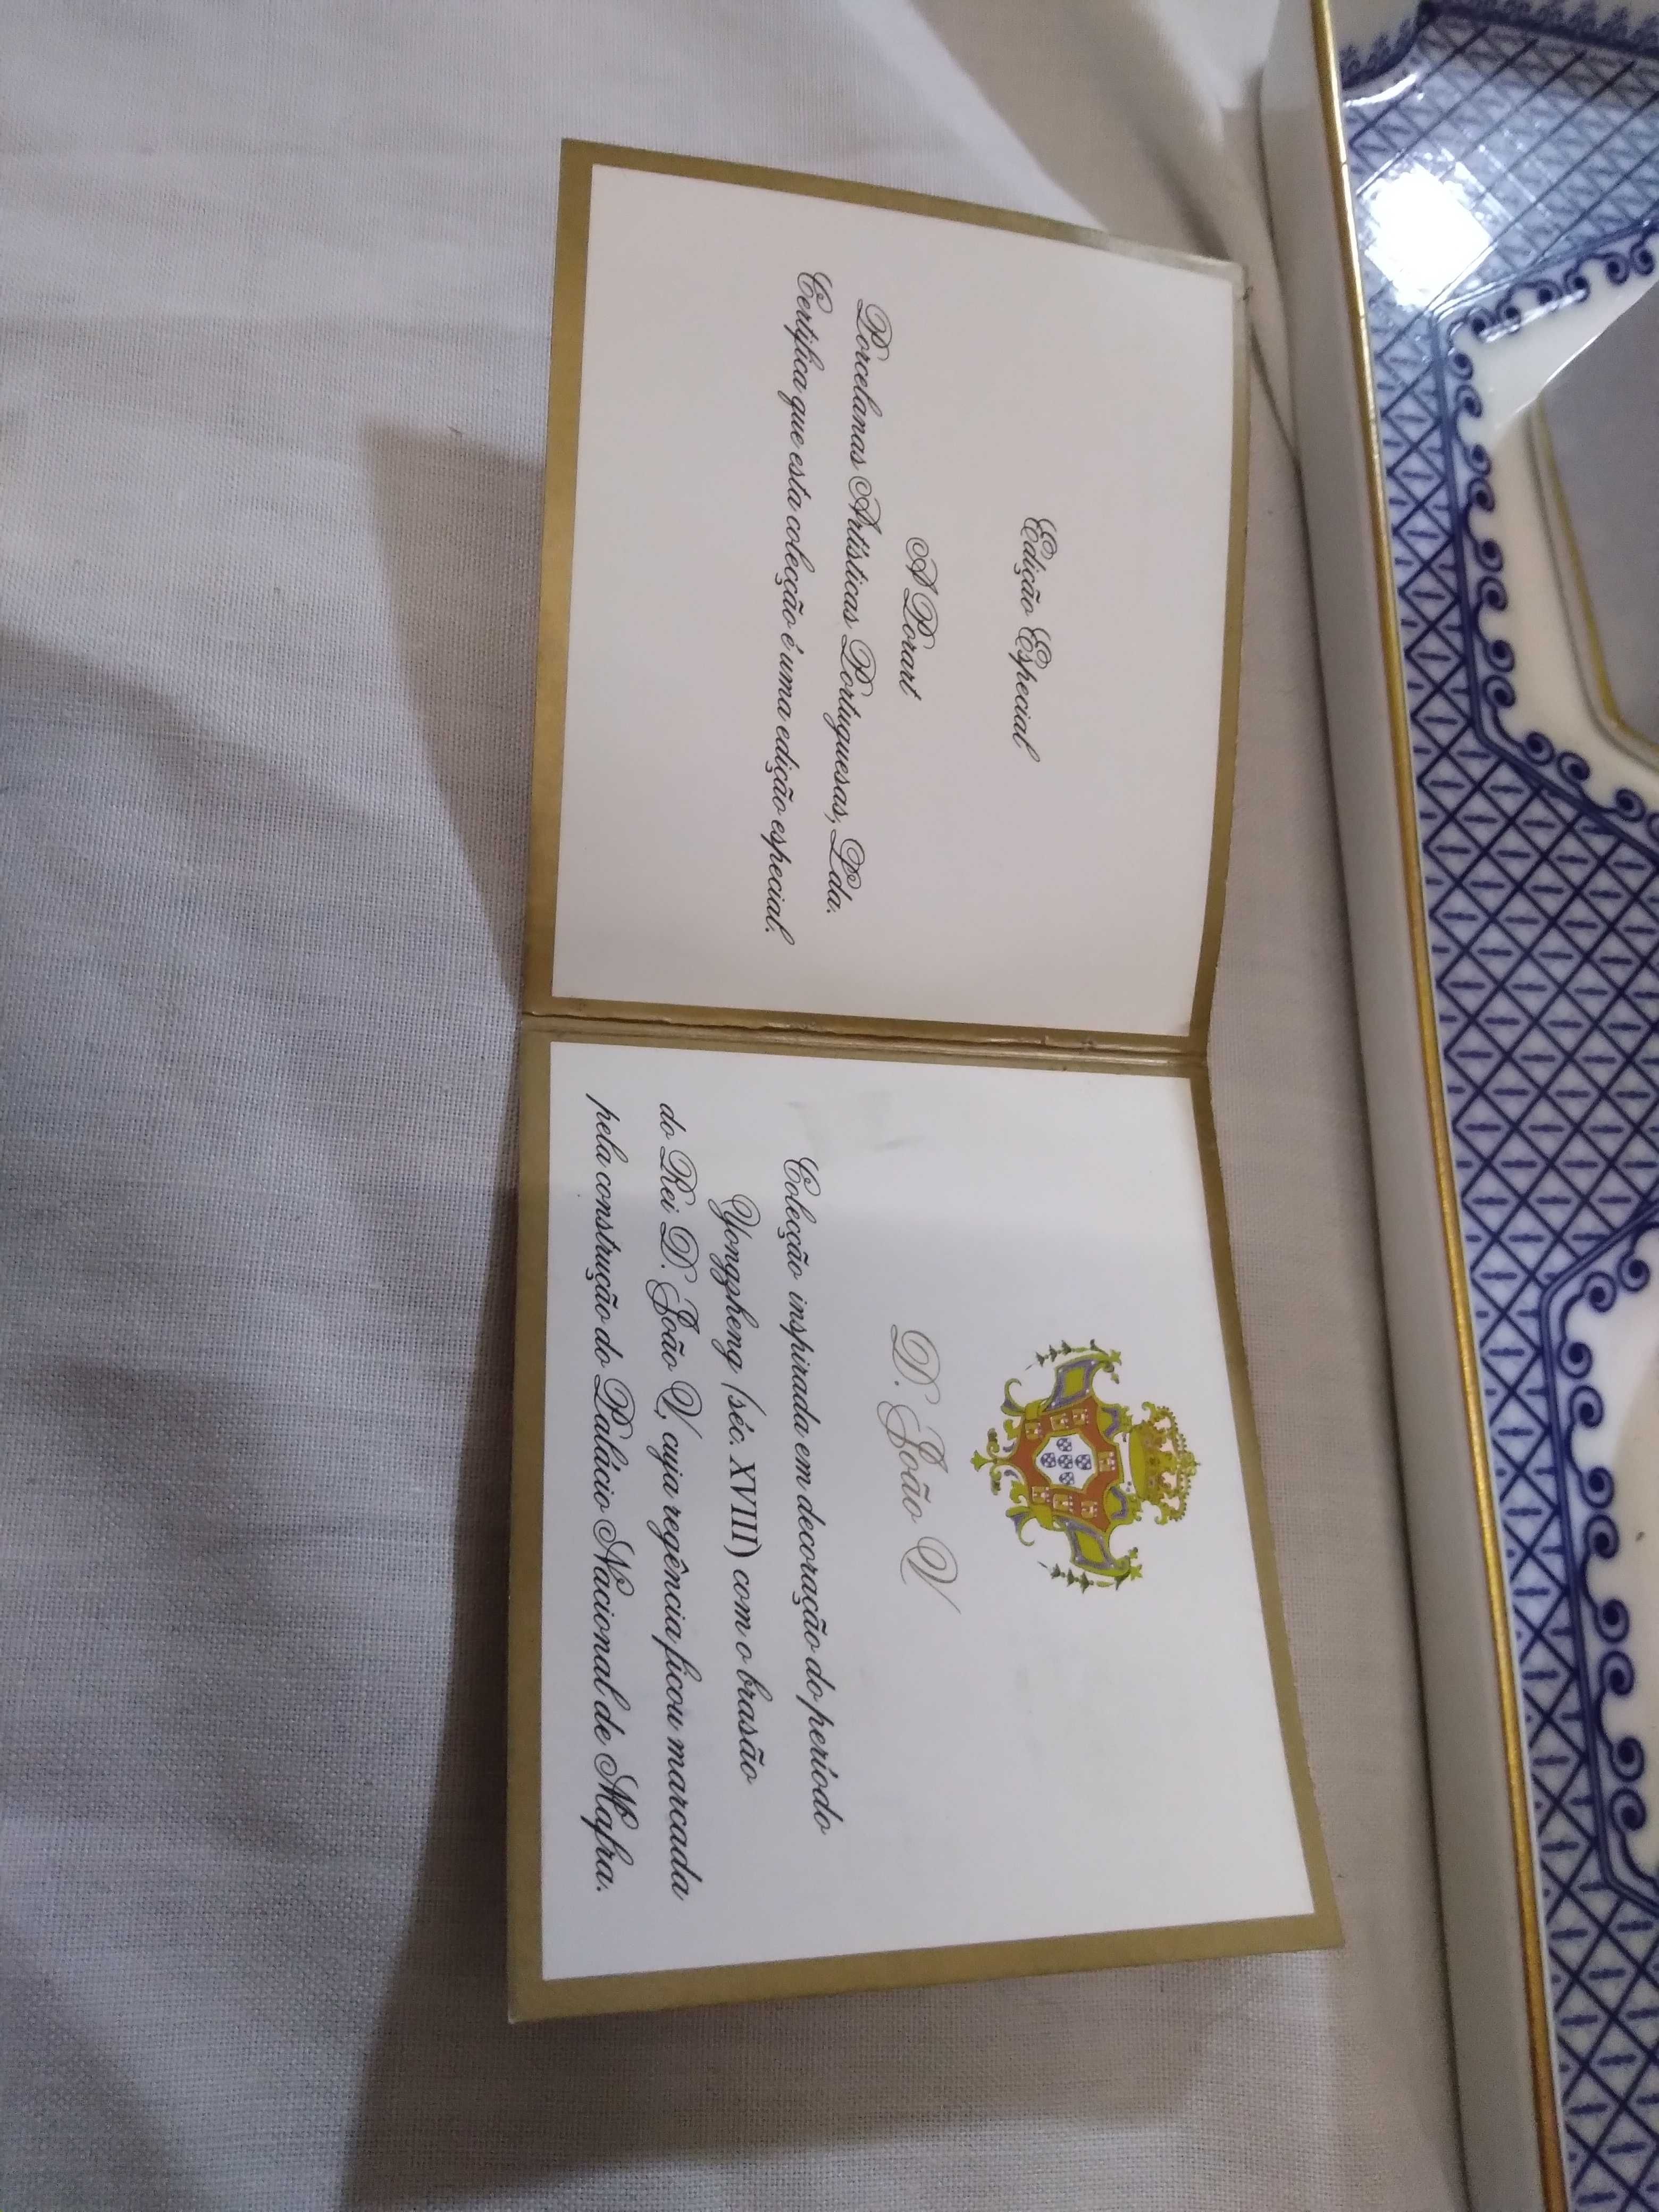 Edição Especial
A Porart
Porcelanas Artísticas Portuguesas, Lda.
Certifica que esta colecção é uma edição especial.
D. João V
Colecção inspirada em decoração do período
Yongzheng (séc. XVIII) com o brasão
do Rei D. João V, cuja regência ficou marcada
pela construção do Palácio Nacional de Mafra.